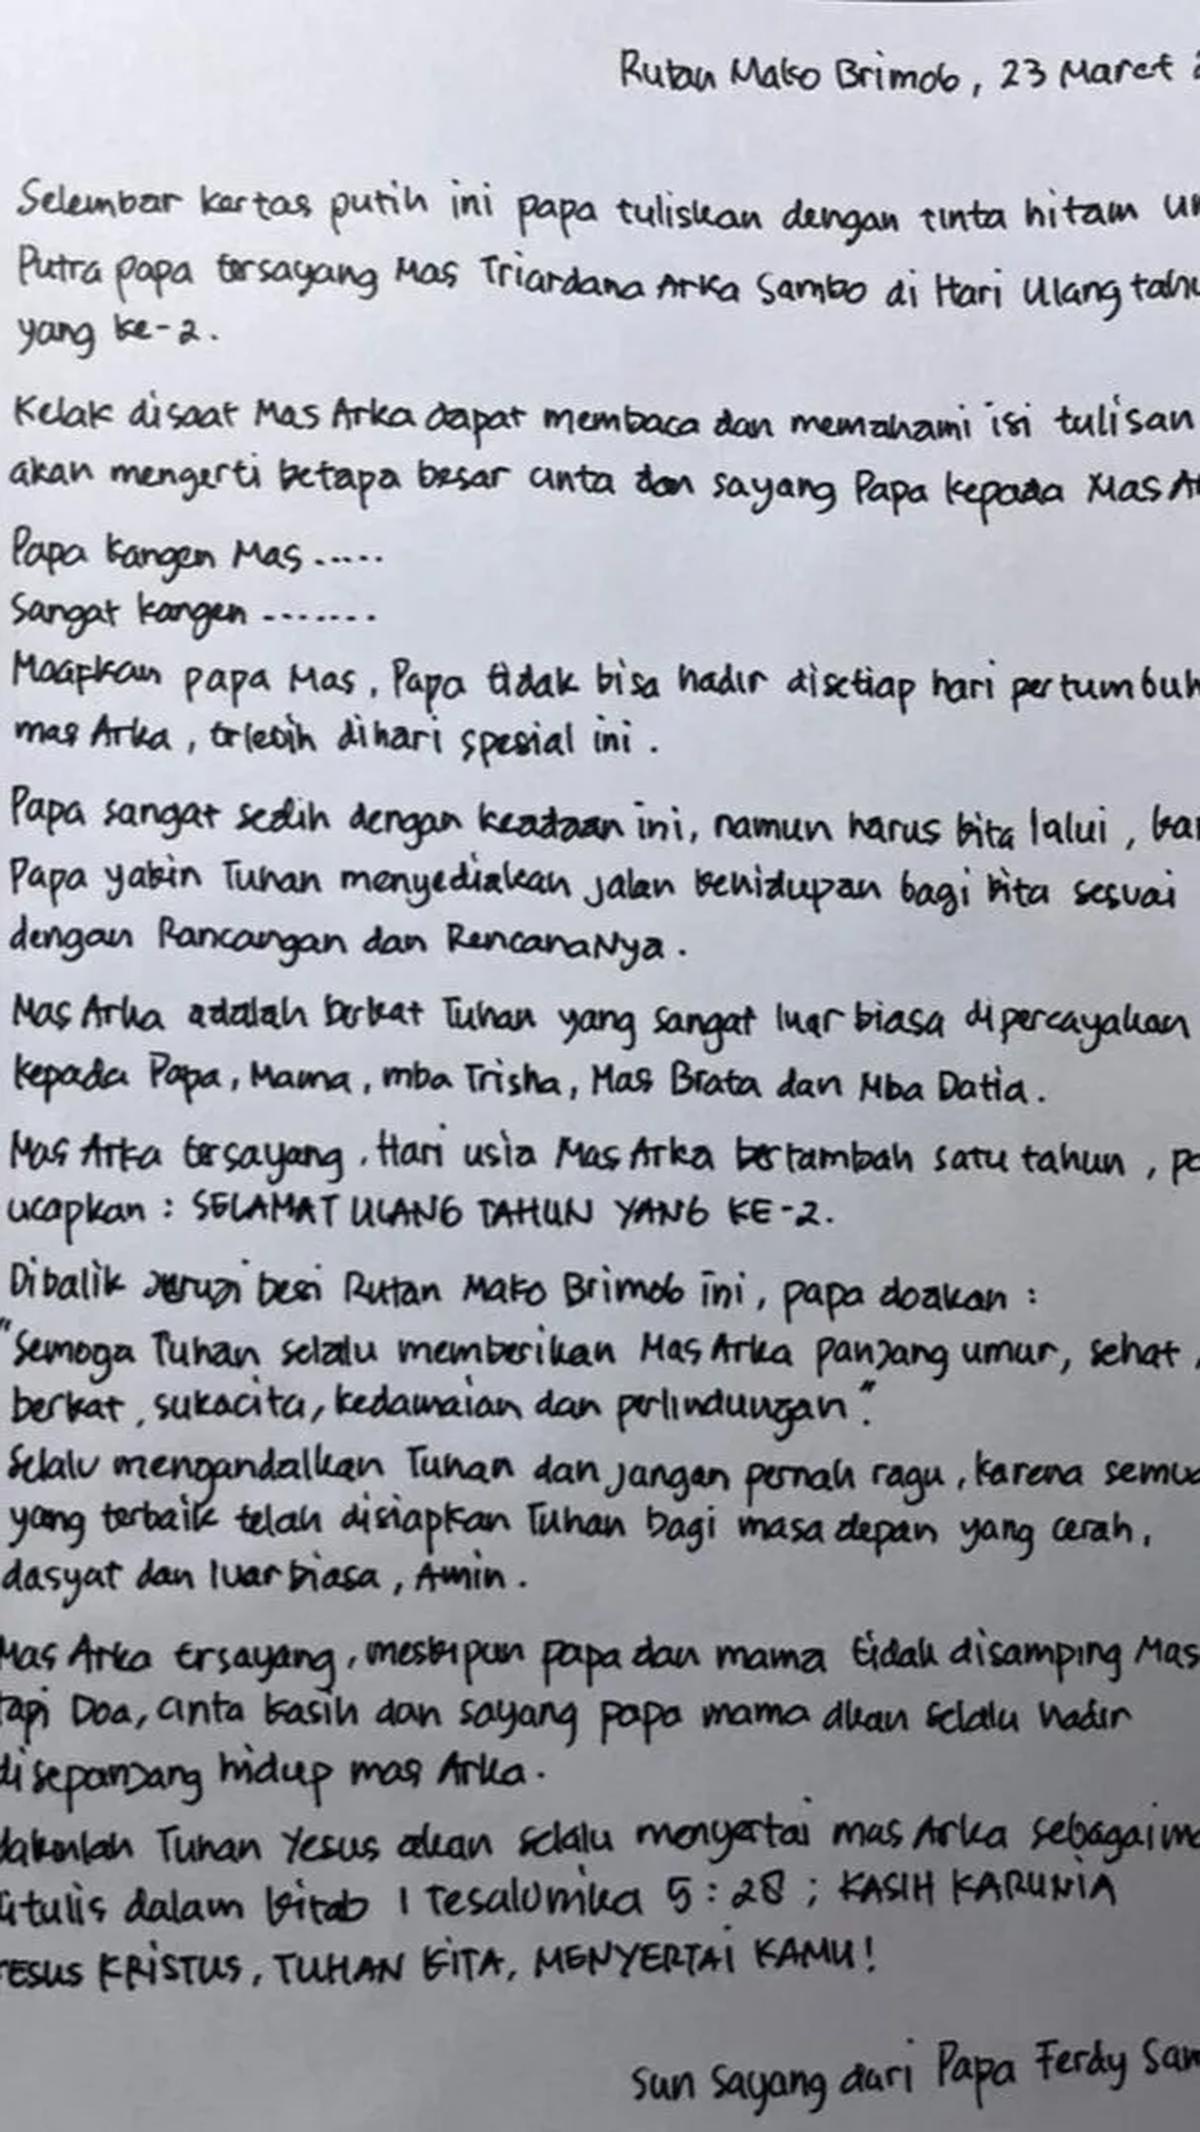 Rutan Mako Brimob, 23 Maret
Selembar kertas putih ini papa tuliskan dengan tinta hitam
Putra papa tersayang Mas Triardana Arka Sambo di Hari Ulang
yang ke-2.
Kelak disaat Mas Arka dapat membaca dan memahami isi tulisan
akan mengerti betapa besar cinta dan sayang Papa kepada Mas
Papa kangen Mas .....
Sangat kangen .......
Maafkan papa Mas, Papa tidak bisa hadir disetiap hari pertumbuh
mas Arka, terlebih dihari spesial ini.
Papa sangat sedih dengan keadaan ini, namun harus kita lalui,
Papa yakin Tuhan menyediakan jalan kehidupan bagi kita sesuai
dengan Rancangan dan RencanaNya.
Mas Arka adalah berkat Tuhan yang sangat luar biasa dipercayakan
kepada Papa, Mama, mba Trisha, Mas Brata dan Mba Datia.
Mas Arka tersayang, Hari usia Mas Arka bertambah satu tahun,
ucapkan : SELAMAT ULANG TAHUN YANG KE-2.
Dibalik Jeruzi besi Rutan Mako Brimob ini, papa doakan :
"Semoga Tuhan selalu memberikan Mas Arka panjang umur, sehat,
berkat, sukacita, kedamaian dan perlindungan".
Selalu mengandalkan Tuhan dan jangan pernah ragu, karena semua
yang terbaik telah disiapkan Tuhan bagi masa depan yang cerah,
dasyat dan luar biasa, Amin.
Mas Arka tersayang, meskipun papa dan mama tidak disamping Mas
tapi Doa, cinta kasih dan sayang papa mama akan selalu hadir
disepanjang hidup mas Arka.
Yakinlah Tuhan Yesus akan selalu menyertai mas Arka sebagaima
ditulis dalam kitab 1 Tesalonika 5 : 28 ; KASIH KARUNIA
YESUS KRISTUS, TUHAN KITA, MENYERTAI KAMU!
Sun Sayang dari Papa Ferdy Sam